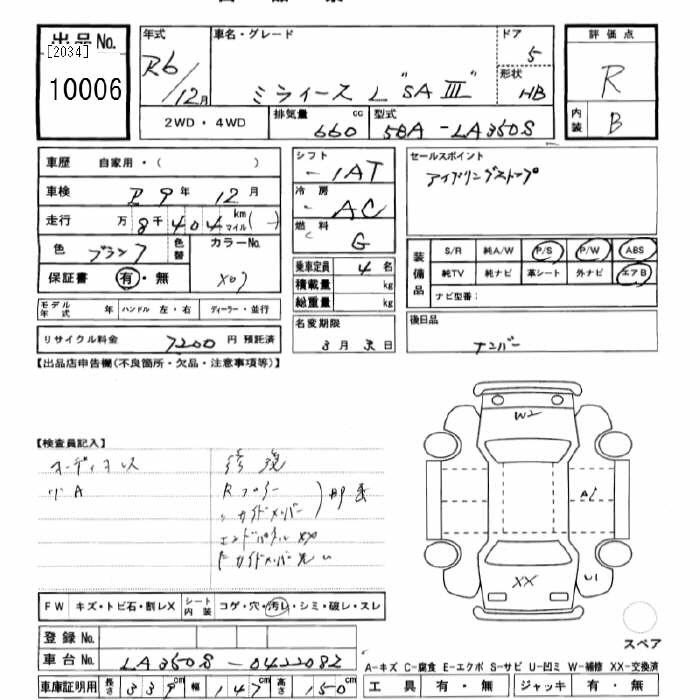 出品No.
[2034]
10006
年式
R6/12月
車名・グレード
ミライース L "SA III"
ドア
5
形状
HB
2WD・4WD
排気量
660 cc
型式
5BA-LA350S
評価点
R
内装
B
車歴 自家用・( )
車検 R9年12月
走行 万8千404 km マイル(-)
色 ブラック 色替 カラーNo.
保証書 有・無 X07
モデル年式 年 ハンドル 左・右 ディーラー・並行
リサイクル料金 7200円 預託済
シフト
-1AT
冷房
AC
燃料
G
乗車定員 4名
積載量 kg
総重量 kg
名変期限
3月末日
セールスポイント
アイドリングストップ
装備品
S/R 純A/W P/S P/W ABS
純TV 純ナビ 革シート 外ナビ エアB
ナビ型番:
後日品
ナンバー
【出品店申告欄(不良箇所・欠品・注意事項等)】
【検査員記入】
オーディオレス 修復
リA Rフロアー
サイドメンバー
エンドパネルXX
W2
A1
XX
U1
FW キズ・トビ石・割レX シート内装 コゲ・穴・汚レ・シミ・破レ・スレ
スペア
登録No.
車台No. LA350S-0422082
A-キズ C-腐食 E-エクボ S-サビ U-凹ミ W-補修 XX-交換済
車庫証明用 長さ 339cm 幅 147cm 高さ 150cm
工具 有・無 ジャッキ 有・無